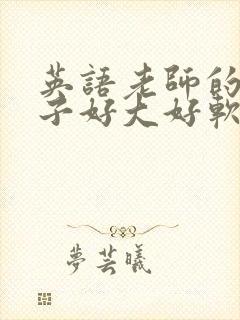 英語老師的
子好大好軟
夢芸曦